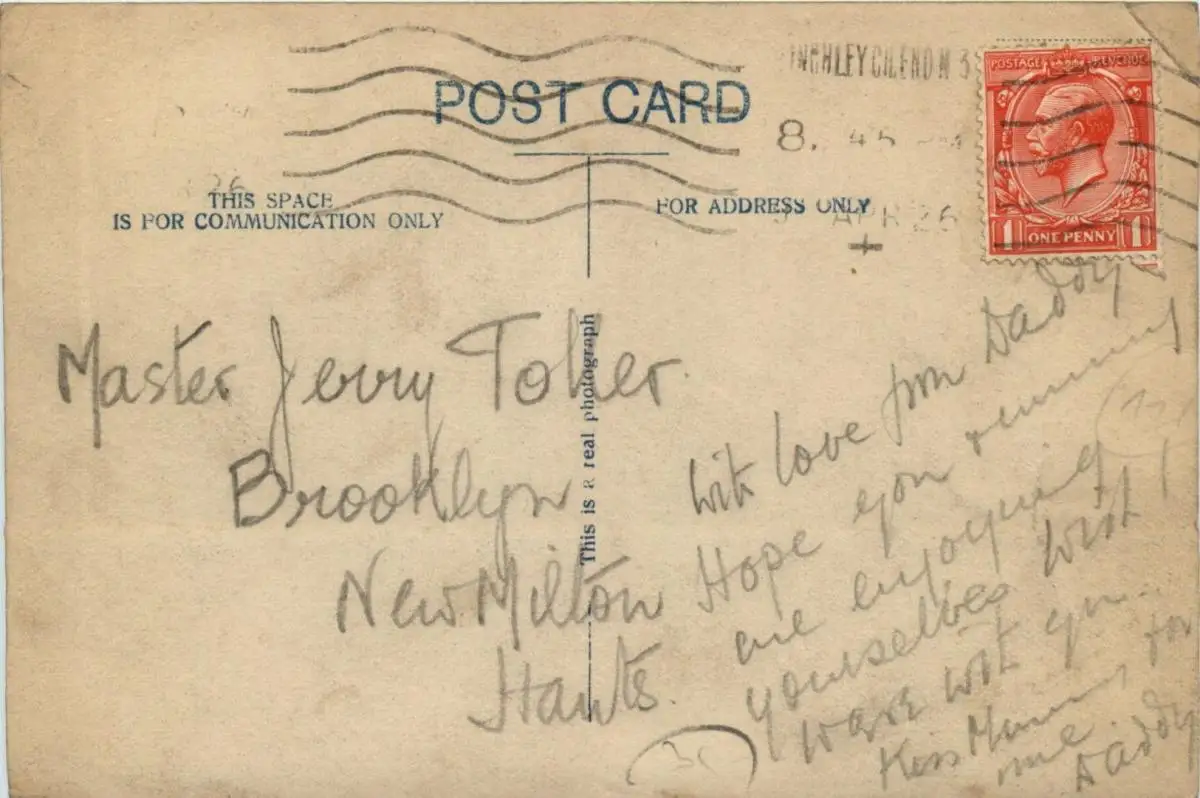 POST CARD
THIS SPACE
IS FOR COMMUNICATION ONLY
FOR ADDRESS ONLY
This is a real photograph
INCHLEY CH. END N 3
8. 45
APR 26
POSTAGE REVENUE
1 ONE PENNY 1
Master Jerry Toller.
Brooklyn
New Milton
Hants.
With love from Daddy
Hope you & mummy
are enjoying
yourselves Wish I
were with you.
Kiss Mummy for
me. Daddy